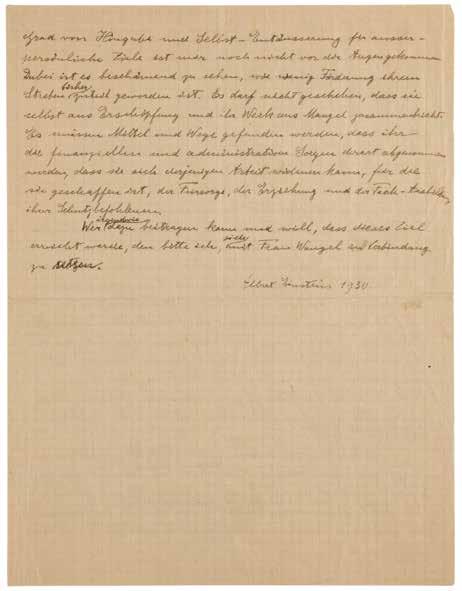 Grad von Hingabe und Selbst-Entäusserung für ausser-
persönliche Ziele ist mir noch nicht vor die Augen gekommen
Dabei ist es beschämend zu sehen, wie wenig Förderung ihrem
bisher
Streben zuteil geworden ist. Es darf nicht geschehen, dass sie
selbst aus Erschöpfung und ihr Werk aus Mangel zusammenbricht.
Es müssen Mittel und Wege gefunden werden, dass ihr
die finanziellen und administrativen Sorgen derart abgenommen
werden, dass sie sich derjenigen Arbeit widmen kann, für die
sie geschaffen ist, der Fürsorge, der Erziehung und der Fach-Ausbildung
ihrer Schutzbefohlenen.
irgendwie
Wer dazu beitragen kann und will, dass dieses Ziel
solle
erreicht werde, den bitte ich, mit Frau Wangel in Verbindung
zu setzen.
Albert Einstein 1930.